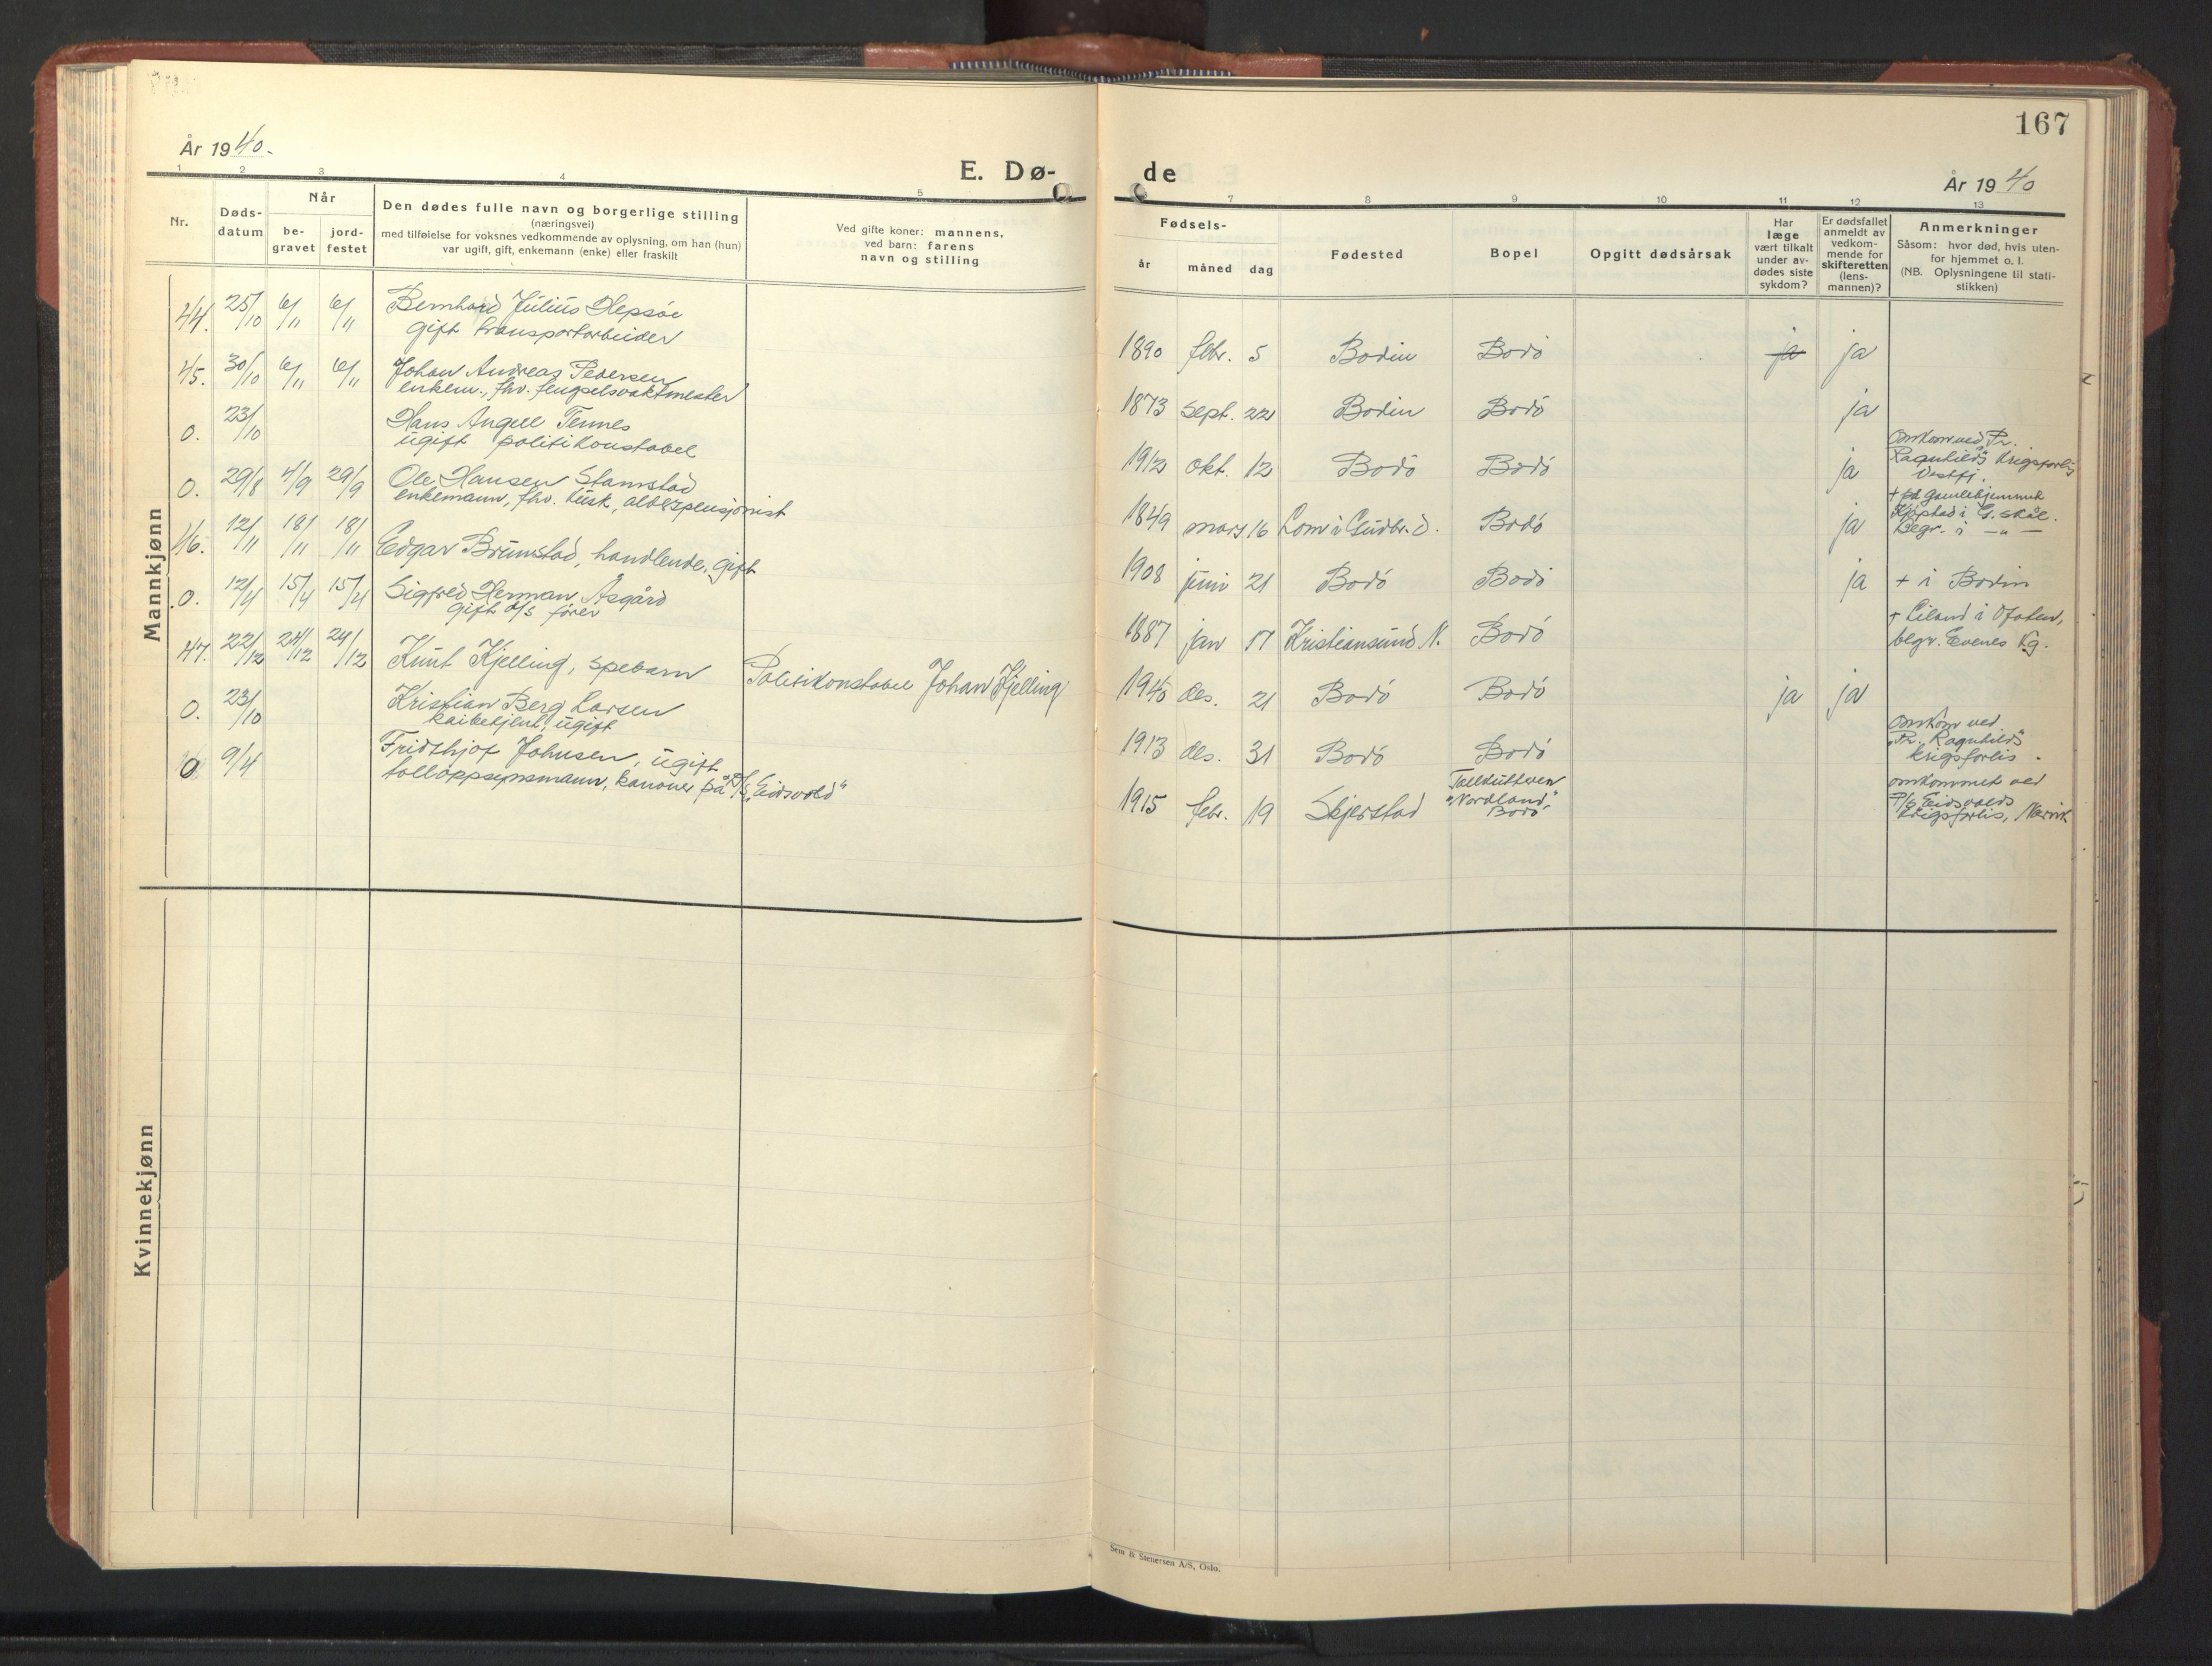 167
År 1940.
E. Dø-
de
År 1940
1 2 3 4 5
7 8 9 10 11 12 13
Nr.
Døds-
datum
Når
be-
gravet
jord-
festet
Den dødes fulle navn og borgerlige stilling
(næringsvei)
med tilføielse for voksnes vedkommende av oplysning, om han (hun)
var ugift, gift, enkemann (enke) eller fraskilt
Ved gifte koner: mannens,
ved barn: farens
navn og stilling
Fødsels-
år måned dag
Fødested
Bopel
Opgitt dødsårsak
Har
læge
vært tilkalt
under av-
dødes siste
sykdom?
Er dødsfallet
anmeldt av
vedkom-
mende for
skifteretten
(lens-
mannen)?
Anmerkninger
Såsom: hvor død, hvis uten-
for hjemmet o. l.
(NB. Oplysningene til stati-
stikken)
Mannkjønn
44. 25/10 6/11 6/11 Bernhard Julius Hepsøe
gift transportarbeider
1890 febr. 5 Bodin Bodö ja ja
45. 30/10 6/11 6/11 Johan Andreas Pedersen
enkem., fhv. fengselsvaktmester
1873 sept. 22 Bodin Bodö ja
0. 23/10 Hans Angell Tennes
ugift politikonstabel
1912 okt. 12 Bodö Bodö ja
omkom ved Pr.
Ragnhilds krigsforlis
Vestfj.
0. 29/8 4/9 29/9 Ole Hansen Stamstad
enkemann, fhv. kusk, alderspensjonist
1849 mars 16 Lom i Gudbr.d. Bodö ja
+ på gamlehjemmet
Kjöpstad i G.skål.
Begr. i — " —
46. 12/11 18/11 18/11 Edgar Brumstad, handlende, gift
1908 juni 21 Bodö Bodö ja + i Bodin
0. 12/4 15/4 15/4 Sigfred Herman Åsgård
gift d/s förer
1887 jan 17 Kristiansund N. Bodö
+ Liland i Ofoten,
begr. Evenes Kg.
47. 22/12 24/12 24/12 Knut Kjelling, spebarn Politikonstabel Johan Kjelling
1940 des. 21 Bodö Bodö ja ja
0. 23/10 Kristian Berg Larsen
kaibetjent, ugift
1913 des. 31 Bodö Bodö
omkom ved
"Pr. Ragnhilds"
krigsforlis.
0. 9/4 Fridthjof Johnsen, ugift
tolloppsynsmann, kanoner på P/S "Eidsvold"
1915 febr. 19 Skjerstad
Tollkutteren
"Nordland,"
Bodö
omkommet ved
P/S Eidsvolds
krigsforlis, Narvik
Kvinnekjønn
Sem & Stenersen A/S, Oslo.